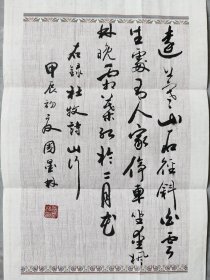 遠上寒山石徑斜白雲
生處有人家停車坐愛楓
林晚霜葉紅於二月花
右錄杜牧詩山行
甲辰初夏